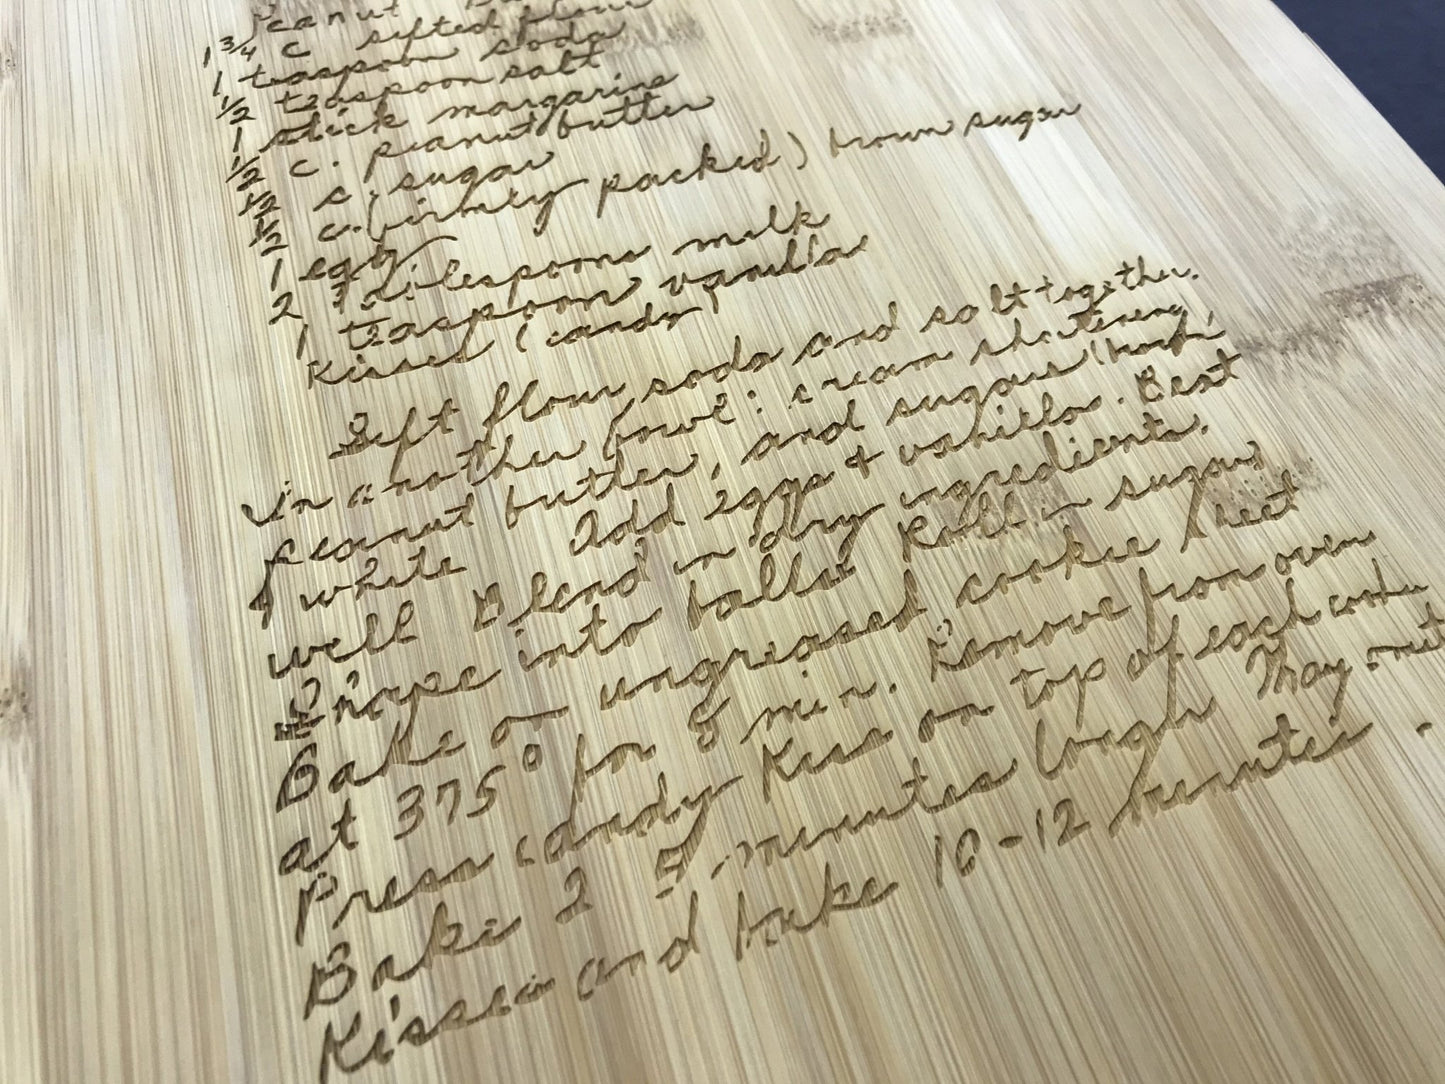 Peanut
1 3/4 c sifted flour
1 teaspoon soda
1/2 teaspoon salt
1 stick margarine
1/2 c. peanut butter
1/2 c. sugar
1/2 c. (firmly packed) brown sugar
1 egg
2 Tablespoons milk
1 teaspoon vanilla
Kisses (candy)
Sift flour soda and salt together.
In another bowl: cream shortening,
peanut butter, and sugars (both
white Add eggs & vanilla. Beat
well Blend in dry ingredients.
Shape into balls. Roll in sugar
Bake on ungreased cookie sheet
at 375° for 8 min. Remove from oven
Press candy Kiss on top of each cookie
Bake 2 5 minutes longer May omit
Kisses and bake 10-12 minutes.